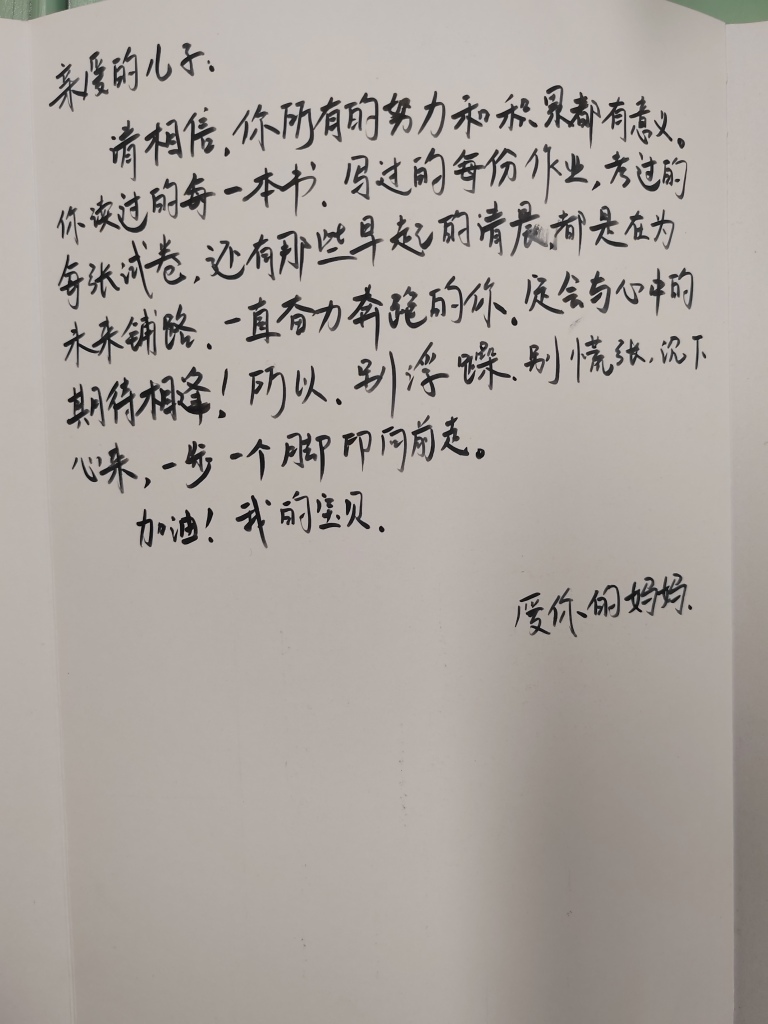 亲爱的儿子：
请相信，你所有的努力和积累都有意义。
你读过的每一本书，写过的每份作业，考过的
每张试卷，还有那些早起的清晨，都是在为
未来铺路，一直奋力奔跑的你，定会与心中的
期待相逢！所以，别浮躁，别慌张，沉下
心来，一步一个脚印向前走。
加油！我的宝贝。
爱你的妈妈.